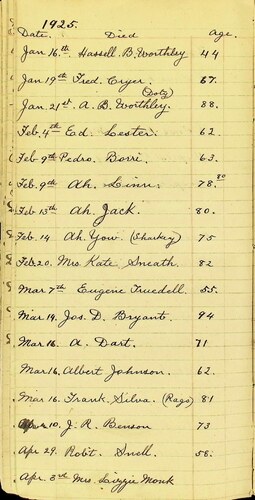 1925.
Date. Died Age.
Jan 16th Hassell B. Worthley 44
Jan 19th Fred. Cryer. 67.
(Doty)
Jan. 21st A. B. Worthley. 88.
Feb. 4th Ed. Lester. 62.
Feb 9th Pedro. Borri. 63.
Feb. 9th Ah. Linn. 78. 80
Feb 13th Ah. Jack. 80.
Feb. 14 Ah. You. (Sharkey) 75
Feb. 20. Mrs Kate Sneath 82
Mar 7th Eugene Truedell. 55.
Mar 14. Jos. D. Bryant. 94
Mar 16. A. Dart. 71
Mar 16. Albert Johnson. 62.
Mar 16. Frank. Silva. (Rags) 81
10. J. R. Benson 73
Apr 29. Robt. Snell. 58.
Apr. 3rd Mrs. Lizzie Monk